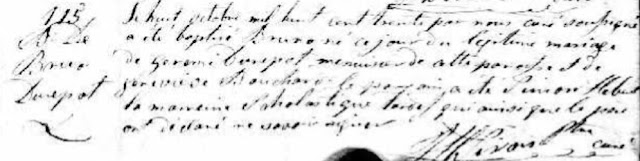 115
Bruno
Durepos
Le huit octobre mil huit cent trente par nous curé soussigné
a été baptisé Bruno né ce jour du légitime mariage
de Geromi Durepos menuisier de cette paroisse et de
Geneviève Bouchard le parrain a été Simon
la marraine Scholastique qui ainsi que le père
ont déclaré ne savoir signer
curé